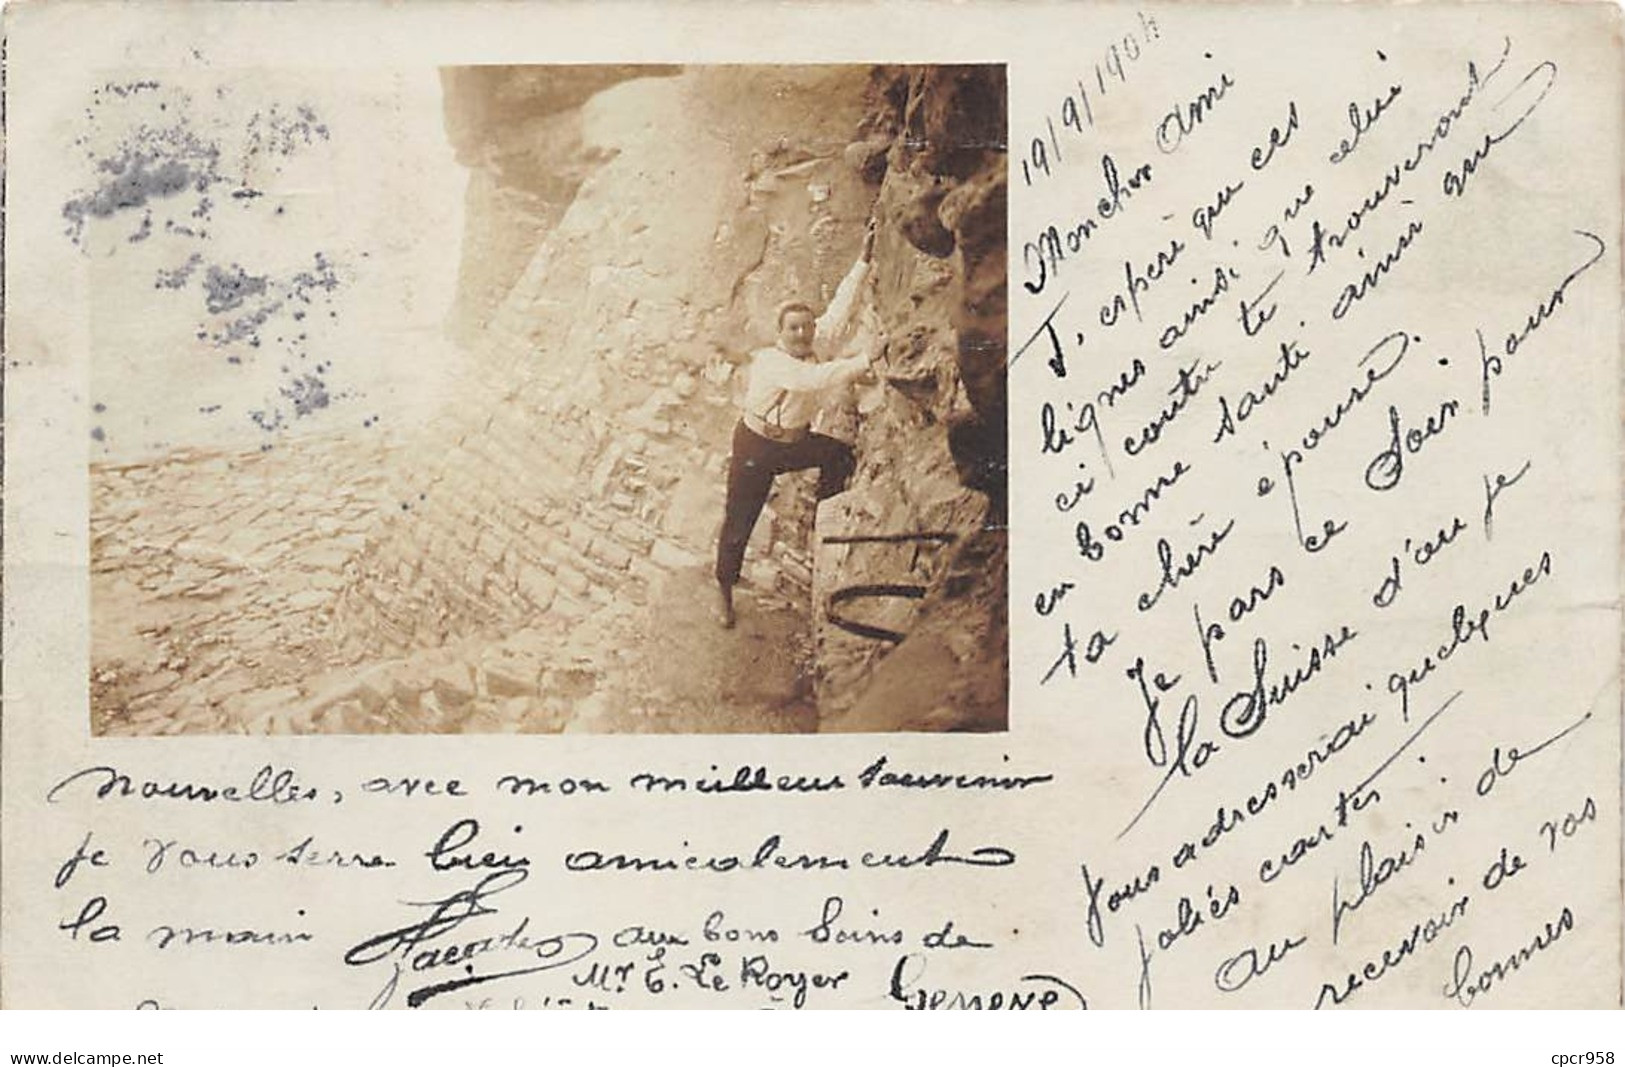 19/9/1904
Mon cher Ami
J, esperé que ces
lignes ainsi que celui
ci contre te trouveront
en bonne santé ainsi que
ta chère épouse.
Je pars ce Soir pour
la Suisse d'ou je
vous adresserai quelques
joliés cartes.
au plaisir de
recevoir de vos
bonnes
nouvelles, avec mon meilleur souvenir
je vous serre bien amicalement
la main
aux bons Soins de
Mr E. Le Royer
Geneve
www.delcampe.net
cpcr958